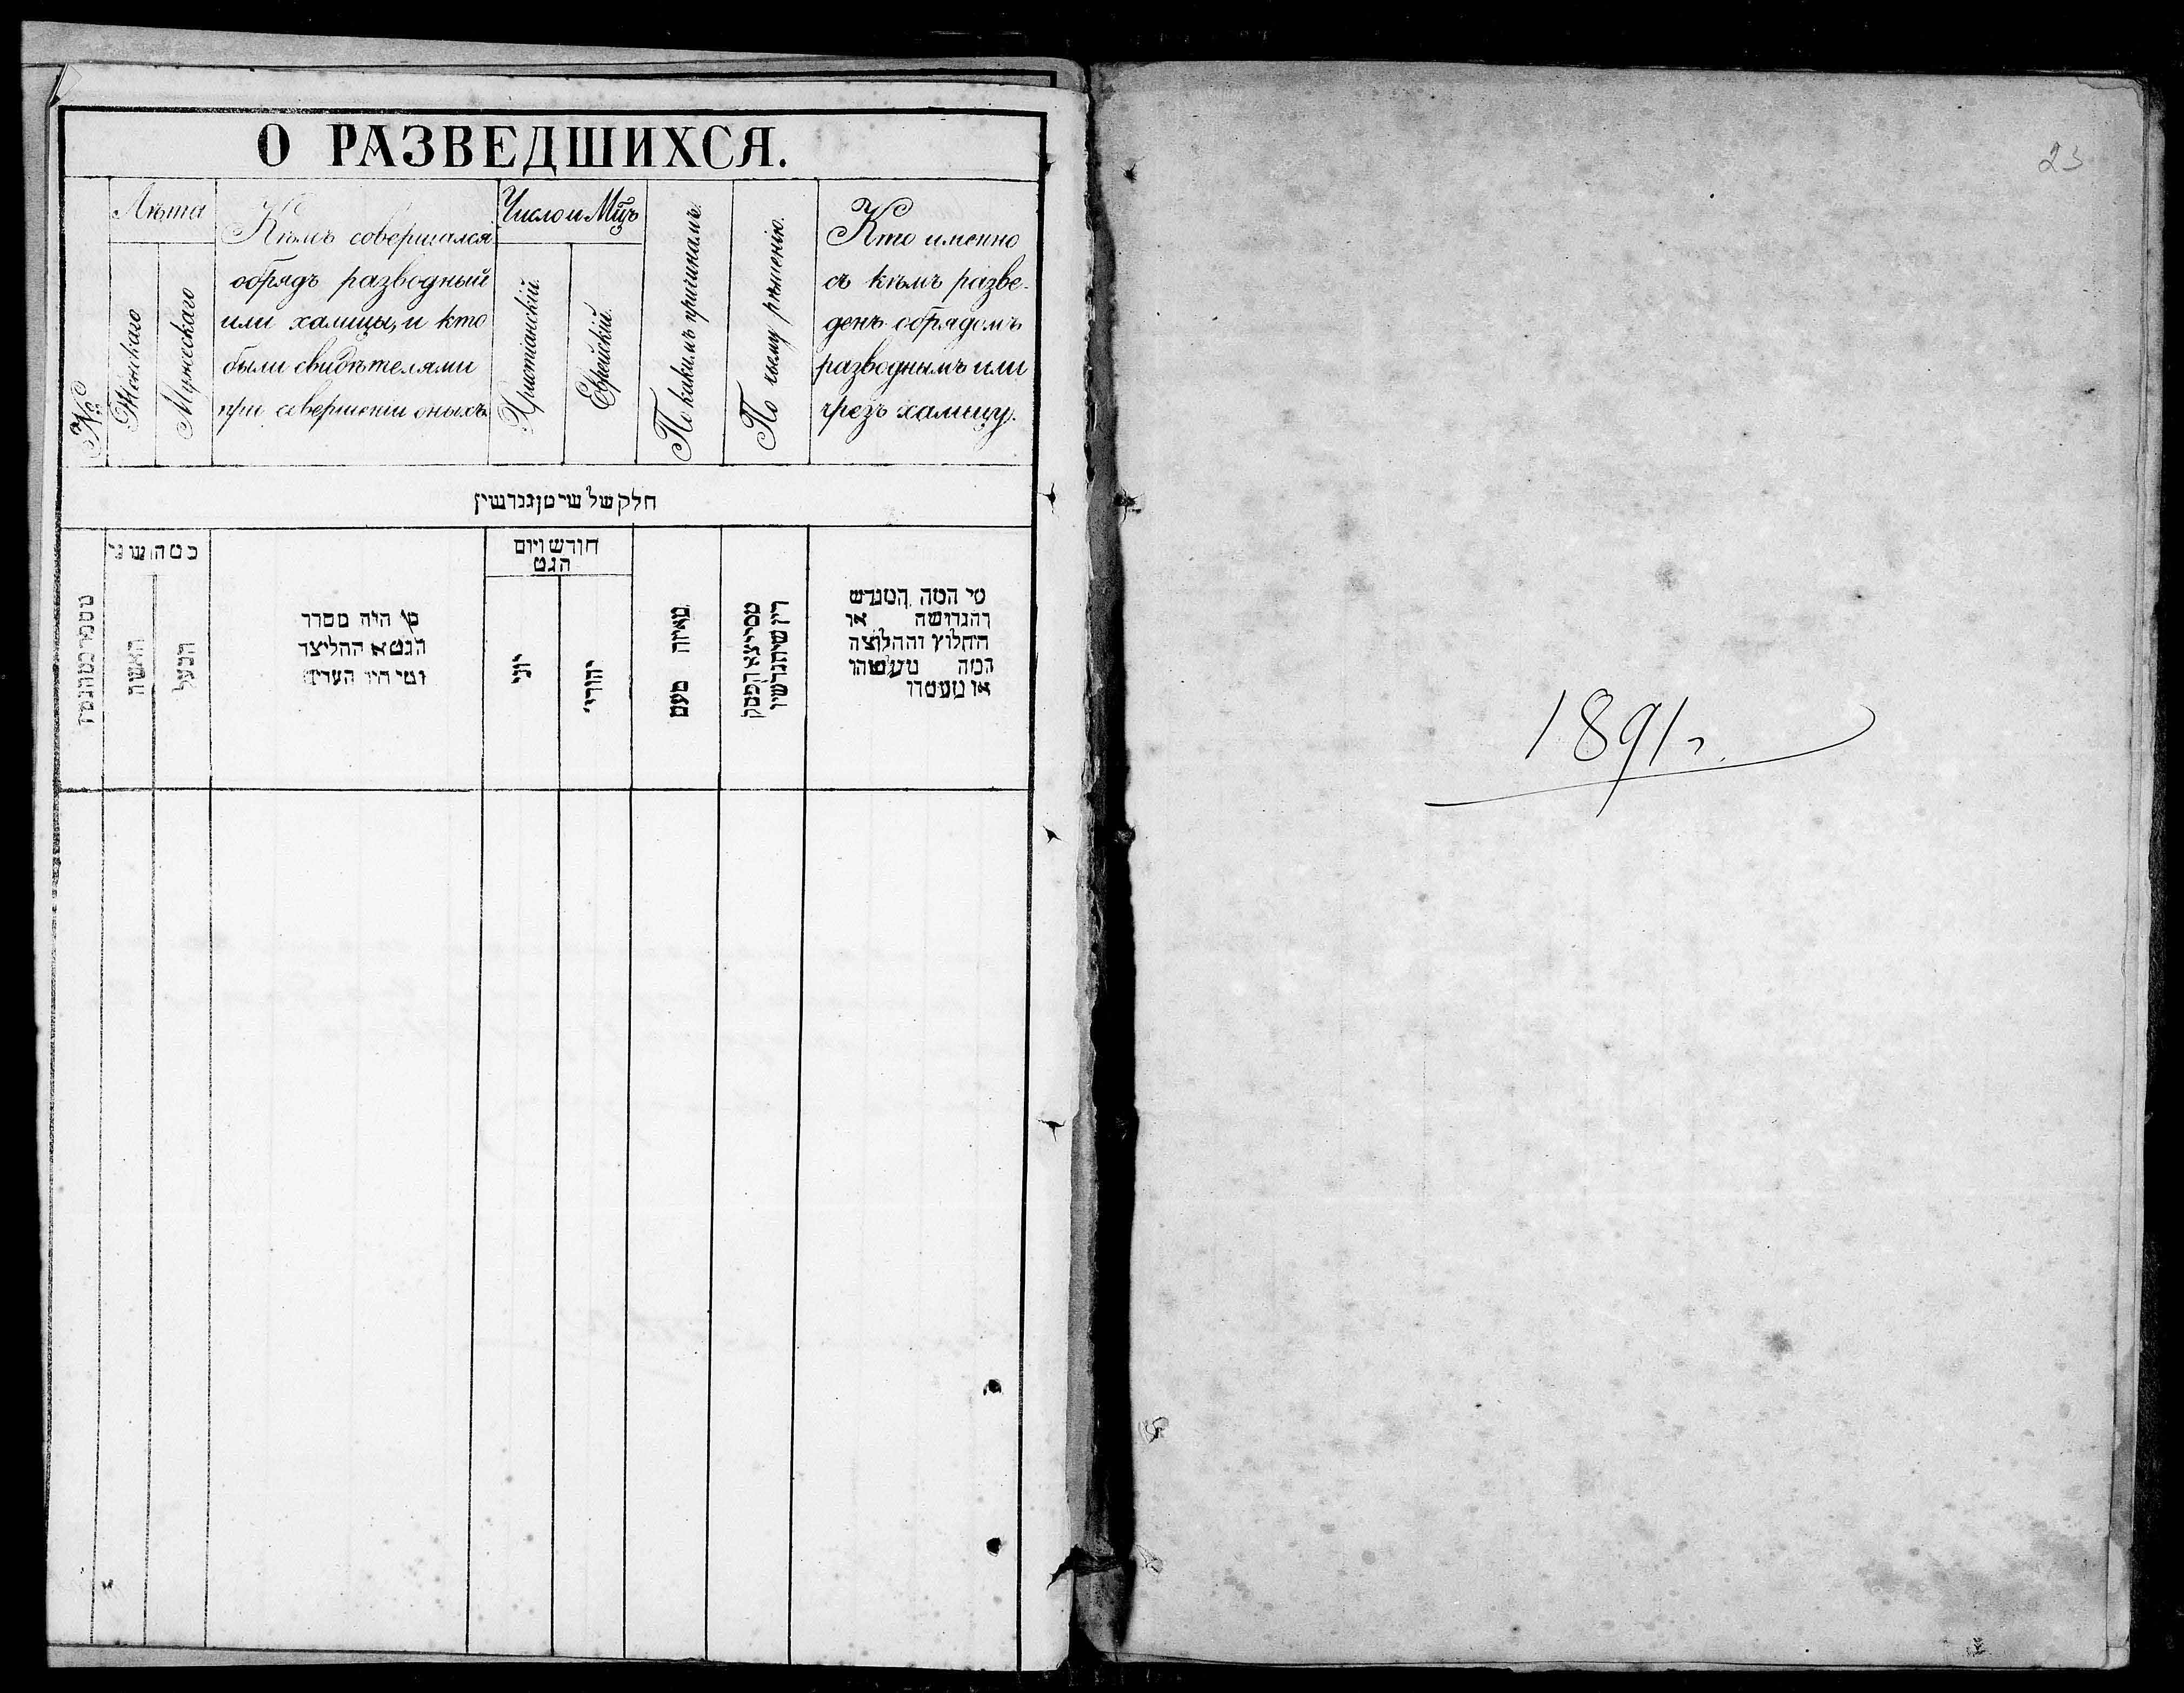 О РАЗВЕДШИХСЯ.
№
Лѣта
Женскаго
Мужескаго
Кѣмъ совершался
обрядъ разводный
или халицы, и кто
были свидѣтелями
при совершеніи оныхъ.
Число и Мцъ
Христіанскій.
Еврейскій.
По какимъ причинамъ.
По чьему рѣшенію.
Кто именно
съ кѣмъ разве-
денъ обрядомъ
разводнымъ или
чрезъ халицу.
חלק של שטן גרושין
האשה
הבעל
מי היה מסדר
הגט או החליצה
ומי היו העדים
חודש ויום
הגט
יוני
יהודי
מאיזה טעם
מי המה המגרש
והגרושה או
החלוץ והחלוצה
המה
או
23
1891 г.